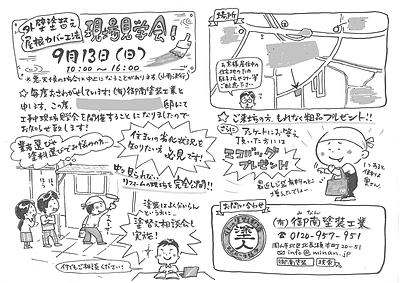 外壁塗装え
屋根カバー工法
現場見学会！
9月13日（日）
10:00～16:00
※悪天候の場合は中止になることがあります（小雨決行）
☆毎度おさわがせしています！（有）御南塗装工業と
申します。この度、 邸にて
工事中現場見学会を開催することになりましたので
お知らせ致します！
業者選びや
塗料選びでお悩みの方…
住まいの劣化状況を
知りたい方
必見です！
リフォームの現場も完全公開！！
塗装はよくわからん
という人に…
塗装相談会も
実施！
何でもご相談ください！
場所
☆ご来場の方、もれなく粗品プレゼント！！
さらに
アンケートにお答え
頂いた方には
エコバッグ
プレゼント
お問い合わせ
塗人
みなん
（有）御南塗装工業
0120-957-951
岡山市北区北長瀬本町20-51
info@minan.jp
御南塗装
検索